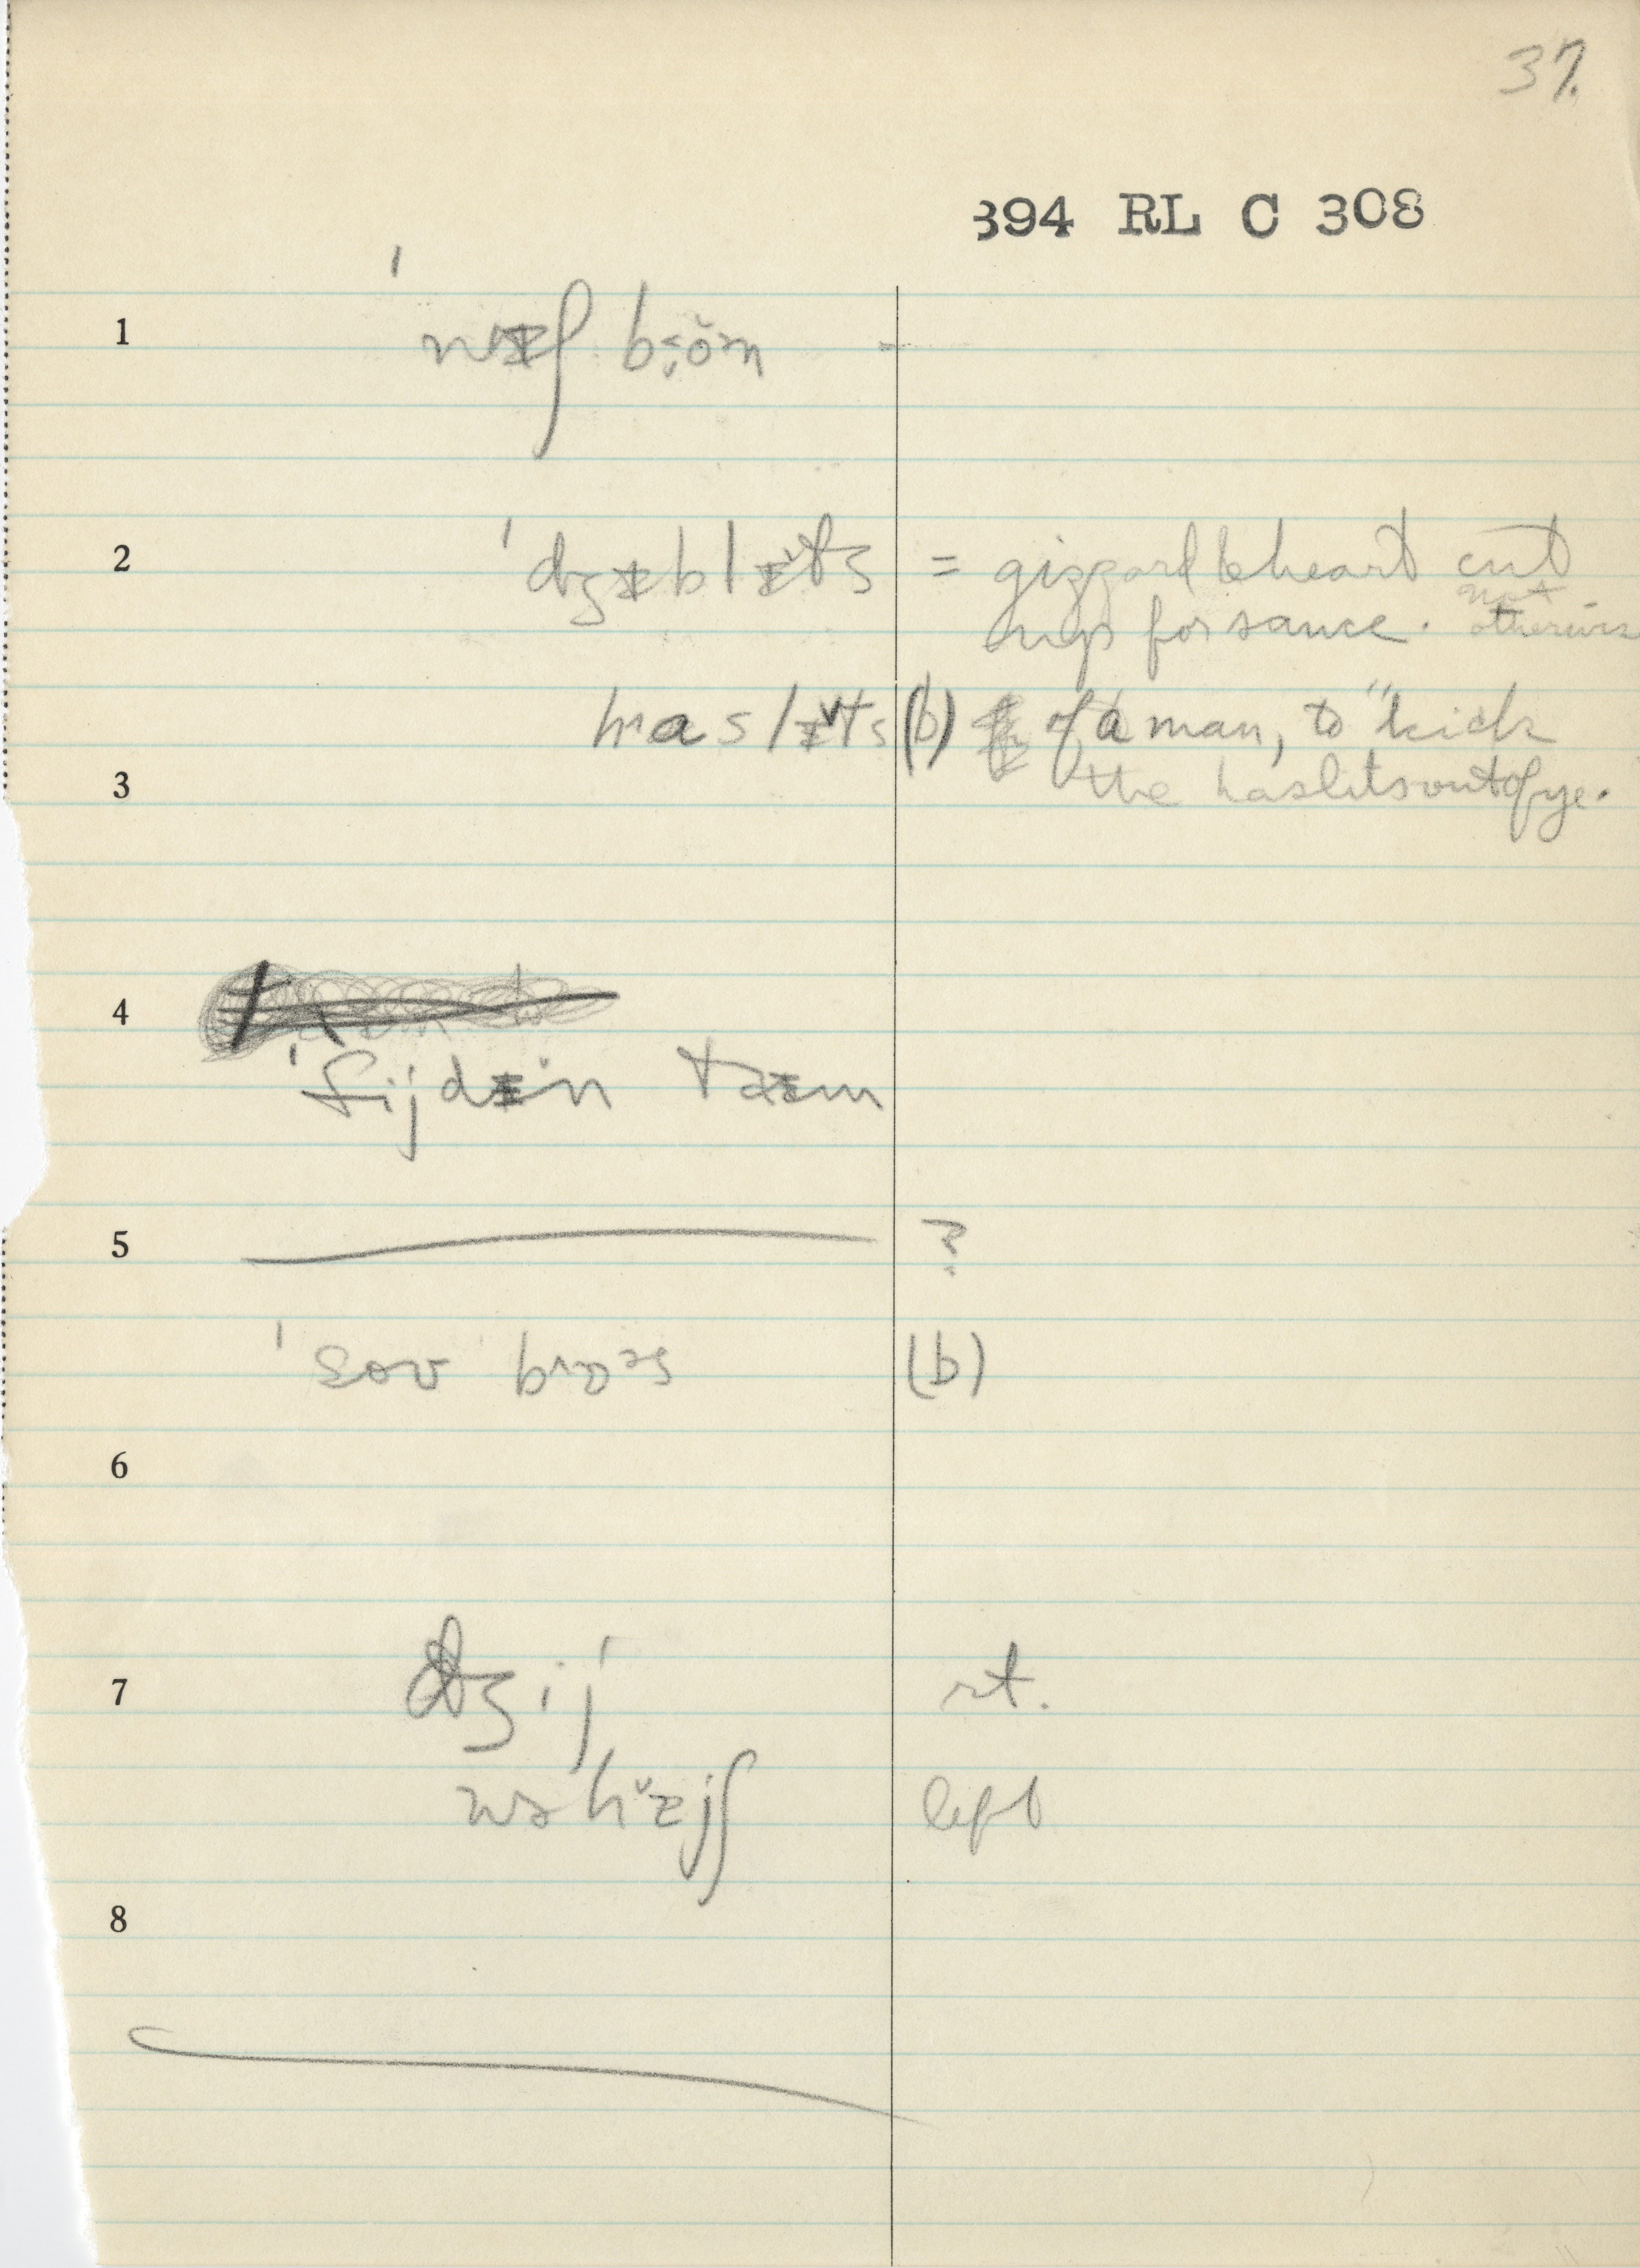 37.
394 RL C 308
1 ˈwɪʃ boˑən
2 ˈdʒɪblɪ̆ts = gizzard & heart cut
up for sauce. not otherwise
haslɪ̆ts (b) of a man, to "kick
3 the haslits out of ye.
4
ˈfijdɪn taɪm
5 ?
ˈsoʊ bɒəs (b)
6
7 dʒij rt.
wəhɪ̆jʃ left
8